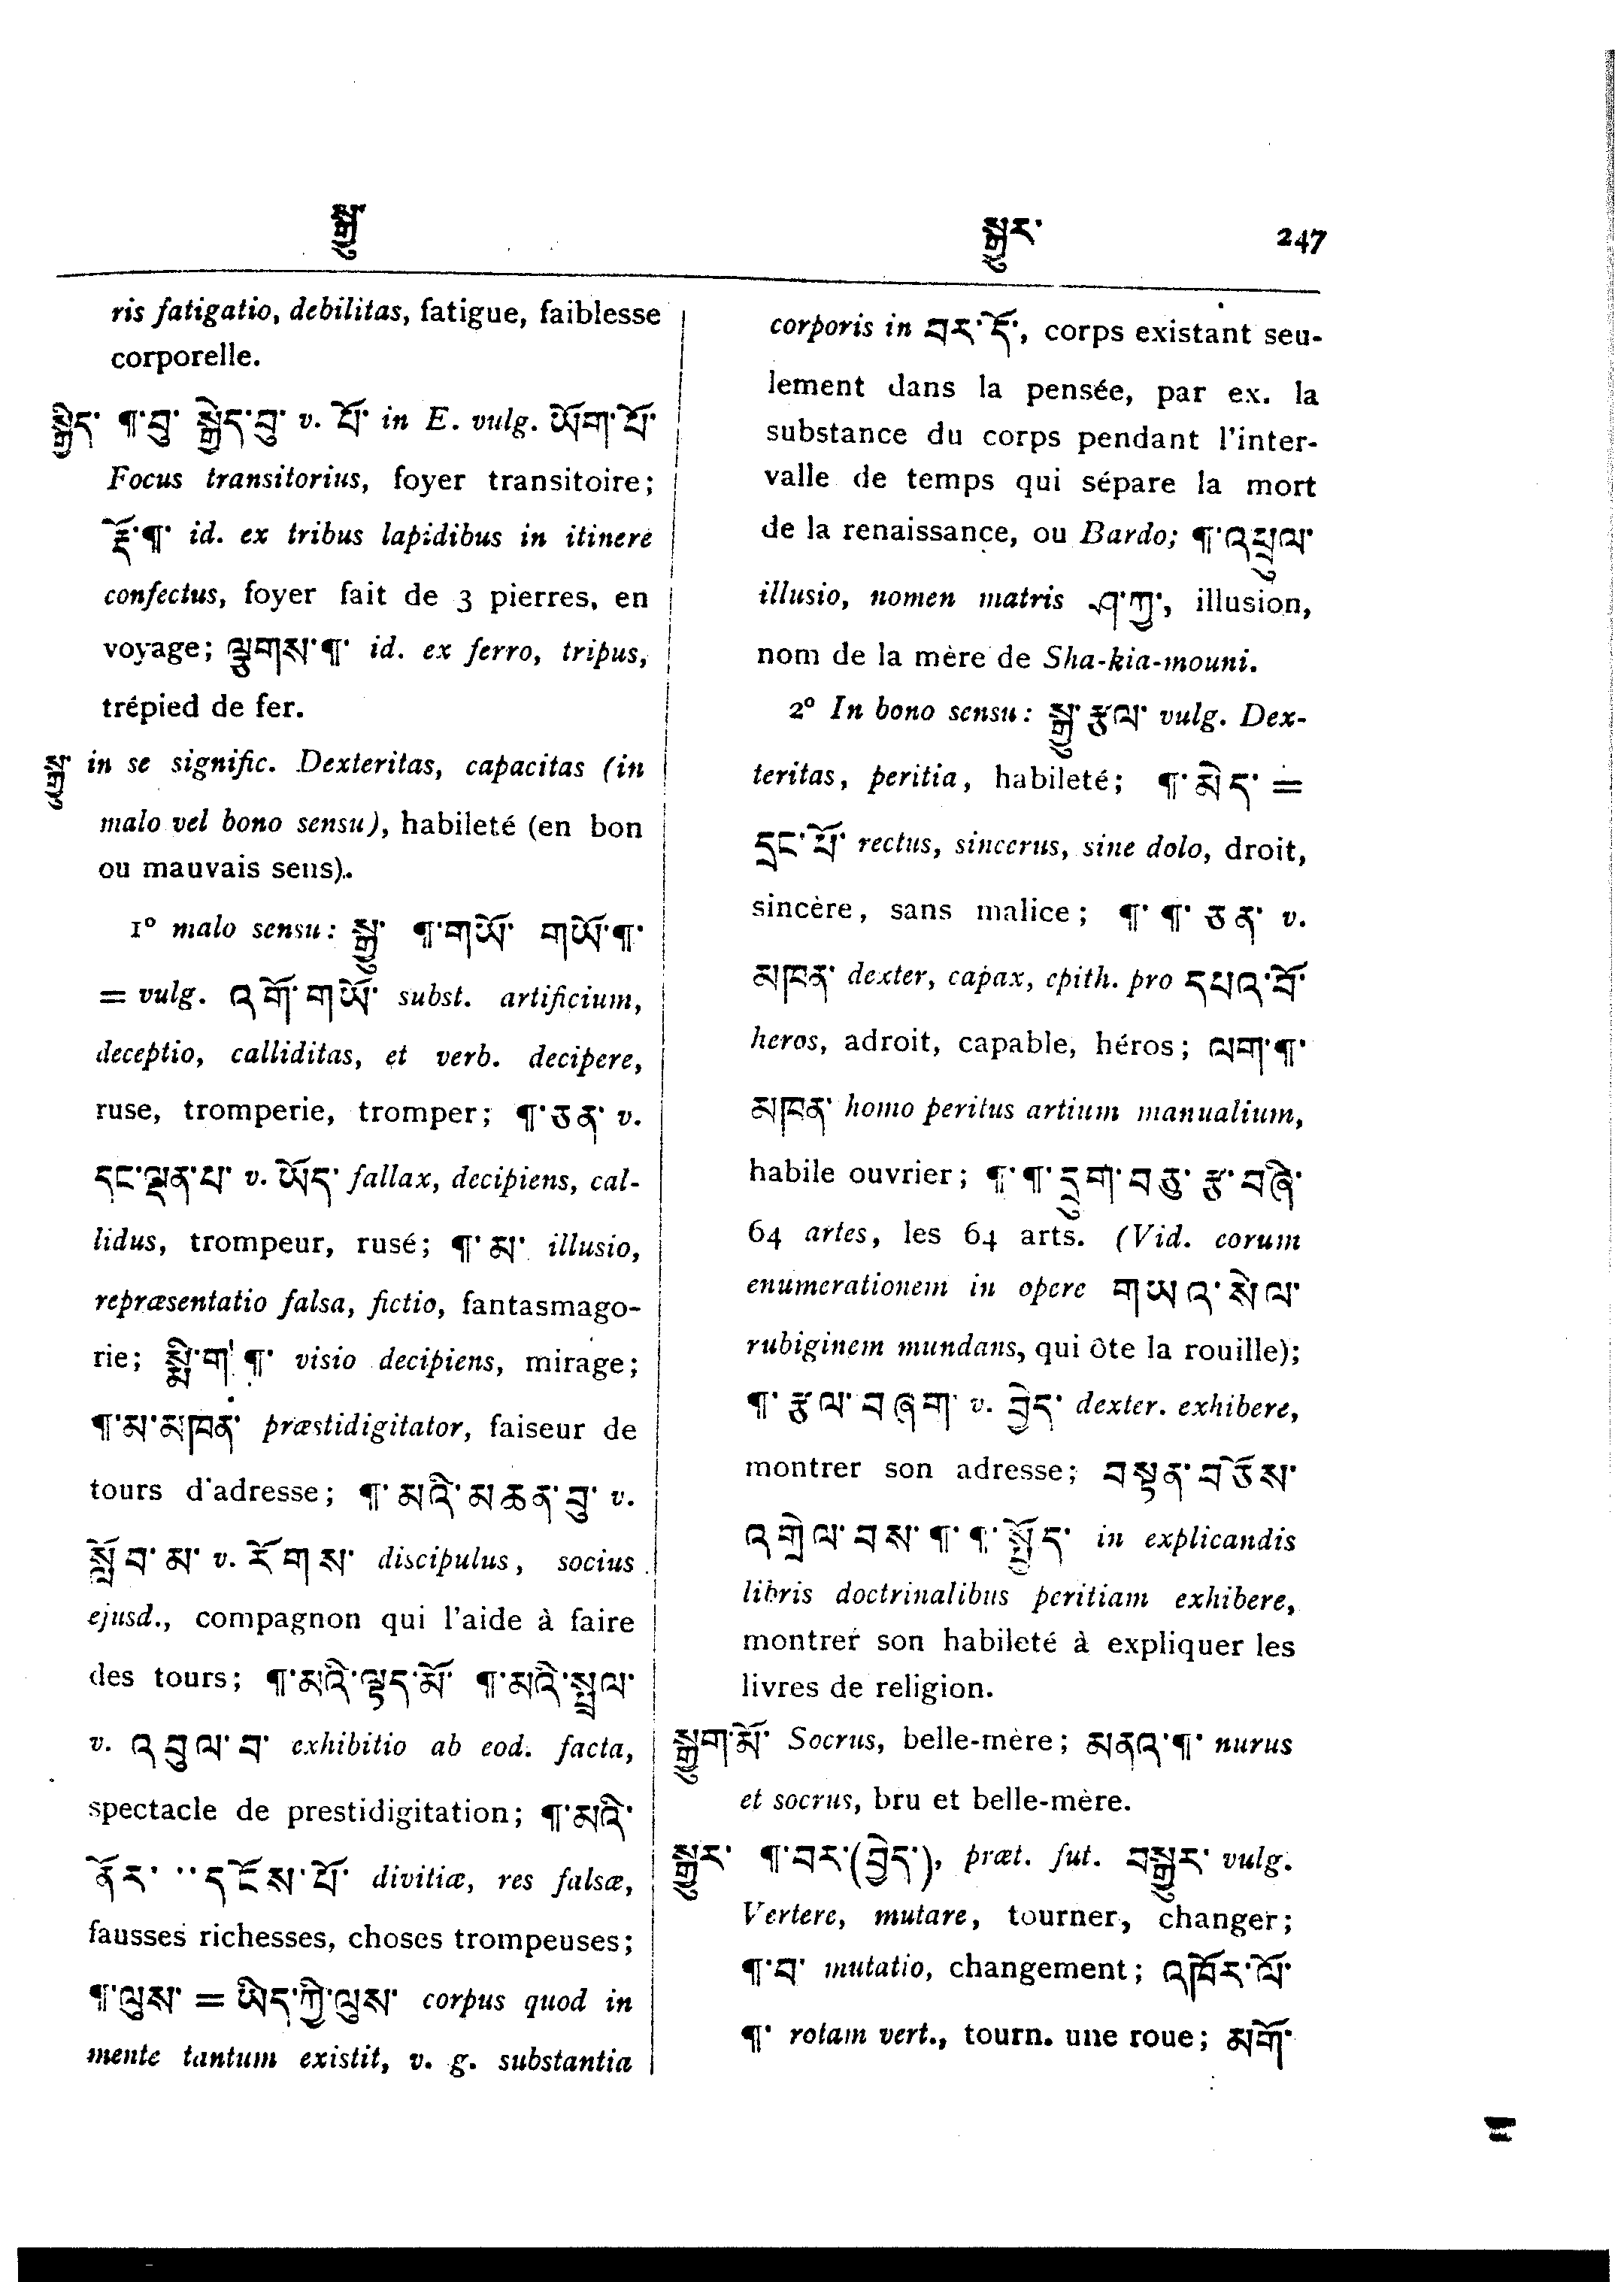 སྒྱུ་
སྒྱུར་ 247
ris fatigatio, debilitas, fatigue, faiblesse
corporelle.
སྒྱིད་ ¶་བུ་ སྒྱེད་བུ་ v. པོ་ in E. vulg. ཡོག་པོ་
Focus transitorius, foyer transitoire;
རྡོ་¶་ id. ex tribus lapidibus in itinere
confectus, foyer fait de 3 pierres, en
voyage; ལྕགས་¶་ id. ex ferro, tripus,
trépied de fer.
སྒྱུ་ in se signific. Dexteritas, capacitas (in
malo vel bono sensu), habileté (en bon
ou mauvais sens).
1º malo sensu: སྒྱུ་ ¶་གཡོ་ གཡོ་¶་
= vulg. འགོ་གཡོ་ subst. artificium,
deceptio, calliditas, et verb. decipere,
ruse, tromperie, tromper; ¶་ཅན་ v.
དང་ལྡན་པ་ v. ཡོད་ fallax, decipiens, cal-
lidus, trompeur, rusé; ¶་མ་ illusio,
repræsentatio falsa, fictio, fantasmago-
rie; སྨིག་¶་ visio decipiens, mirage;
¶་མ་མཁན་ præstidigitator, faiseur de
tours d'adresse; ¶་མའི་མཆན་བུ་ v.
སློབ་མ་ v. རོགས་ discipulus, socius
ejusd., compagnon qui l'aide à faire
des tours; ¶་མའི་ལྟད་མོ་ ¶་མའི་སྤྲུལ་
v. འབུལ་བ་ exhibitio ab eod. facta,
spectacle de prestidigitation; ¶་མའི་
ནོར་ ་་དངོས་པོ་ divitiæ, res falsæ,
fausses richesses, choses trompeuses;
¶་ལུས་ = ཡིད་ཀྱི་ལུས་ corpus quod in
mente tantum existit, v. g. substantia
corporis in བར་དོ་, corps existant seu-
lement dans la pensée, par ex. la
substance du corps pendant l'inter-
valle de temps qui sépare la mort
de la renaissance, ou Bardo; ¶་འཕྲུལ་
illusio, nomen matris ཤ་ཀྱ་, illusion,
nom de la mère de Sha-kia-mouni.
2º In bono sensu: སྒྱུ་རྩལ་ vulg. Dex-
teritas, peritia, habileté; ¶་མེད་ =
དྲང་པོ་ rectus, sincerus, sine dolo, droit,
sincère, sans malice; ¶་¶་ཅན་ v.
མཁན་ dexter, capax, epith. pro དཔའ་བོ་
heros, adroit, capable, héros; ལག་¶་
མཁན་ homo peritus artium manualium,
habile ouvrier; ¶་¶་དྲུག་བཅུ་རྩ་བཞི་
64 artes, les 64 arts. (Vid. eorum
enumerationem in opere གཡའ་སེལ་
rubiginem mundans, qui ôte la rouille);
¶་རྩལ་བཞག་ v. བྱེད་ dexter. exhibere,
montrer son adresse; བསྟན་བཅོས་
འགྲེལ་བས་¶་¶་སྤྱོད་ in explicandis
libris doctrinalibus peritiam exhibere,
montrer son habileté à expliquer les
livres de religion.
སྒྱུག་མོ་ Socrus, belle-mère; མནའ་¶་ nurus
et socrus, bru et belle-mère.
སྒྱུར་ ¶་བར་(བྱེད་), præt. fut. བསྒྱུར་ vulg.
Vertere, mutare, tourner, changer;
¶་བ་ mutatio, changement; འཁོར་ལོ་
¶་ rotam vert., tourn. une roue; མགོ་